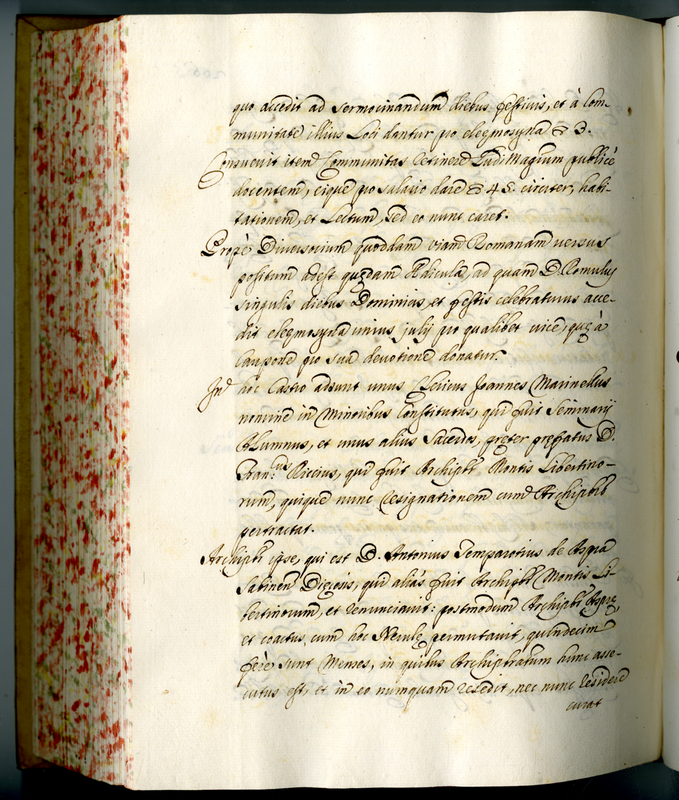 quo accedit ad sermocinandum diebus festivis, et à Com-
munitate illius Loci dantur pro elegmosyna ▽ 3.
Consuevit item Communitas retinere Ludi Magrum publicè
docentem, eique pro salario dare ▽ 45. circiter, habi-
tationem, et Lectum, sed eo nunc caret.
Propè Diversorium quoddam viam Romanam versus
positum adest quędam Ædicula, ad quam D. Romulus
singulis diebus Dominicis, et festis celebraturus acce-
dit elegmosyna unius julij pro qualibet vice, quę à
Caupone pro sua devotione donatur.
In hoc Castro adsunt unus Clericus Joannes Marinellus
nomine in Minoribus Constitutus, qui fuit Seminarij
Alumnus, et unus alius Sacerdos, pręter prefatus D.
Franc.us Riccius, qui fuit Archipbr Montis Libertino-
rum, quique nunc resignationem cum Archipbro
pertractat.
Archipbr ipse, qui est D. Antonius Temparotius de Aspra
Sabinen Dięcesis, qui aliàs fuit Archipbr Montis Li-
bertinorum, et renunciavit: postmodum Archipbr Asprę,
et coactus cum hoc Nerulę permutavit, quindecim
ferè sunt Menses, in quibus Archipbratum hunc asse-
cutus est, et in eo numquam resedit, nec nunc residere
curat